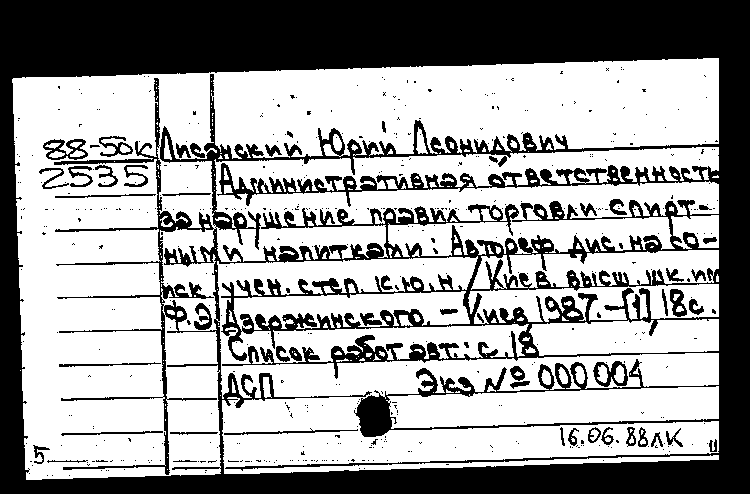 88-50к Лисанский, Юрий Леонидович
2535 Административная ответственность
за нарушение правил торговли спирт-
ными напитками: Автореф. дис. на со-
иск. учен. степ. к.ю.н. / Киев. высш. шк. им
Ф.Э. Дзержинского. - Киев, 1987. - [1], 18 с.
Список работ авт.: с. 18
ДСП Экз № 000004
16.06.88ЛК
5